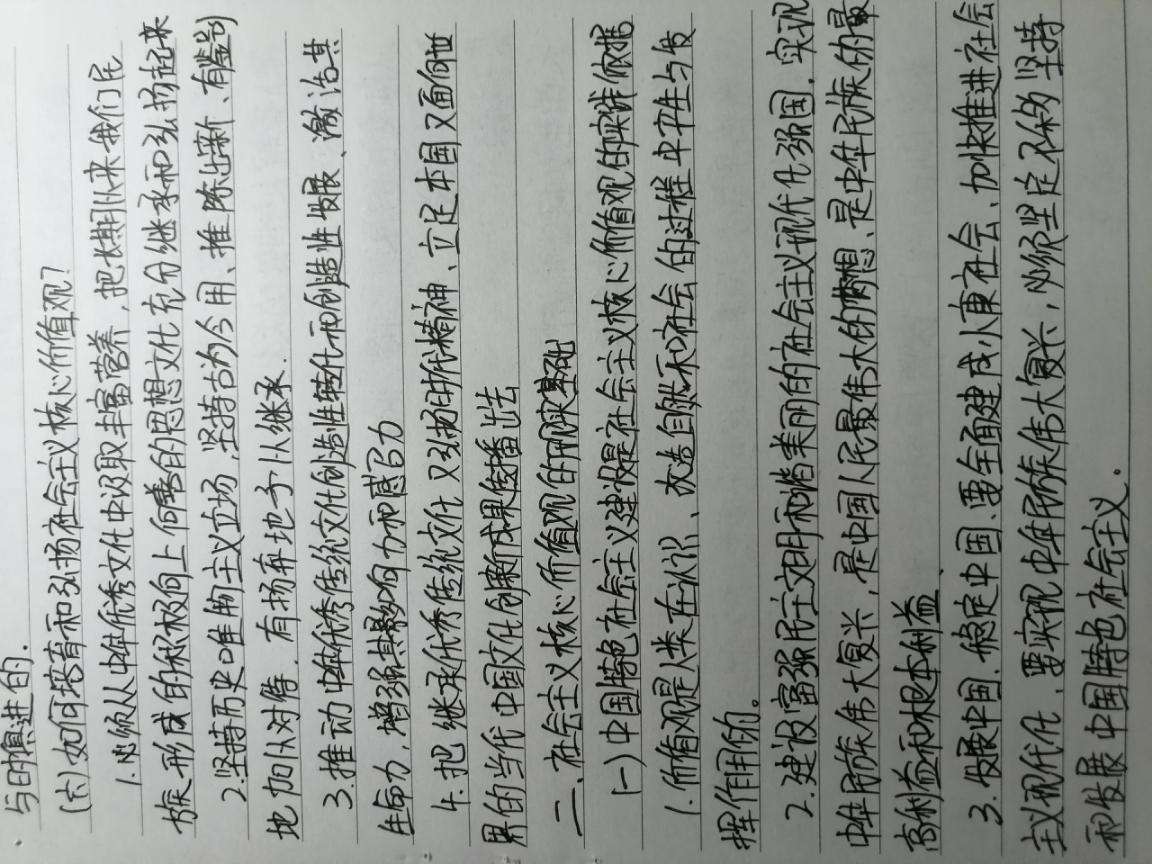 与日俱进的.
(六)如何培育和弘扬社会主义核心价值观?
1.必须从中华优秀文化中汲取丰富营养,把长期以来我们民
族形成的积极向上向善的思想文化充分继承和弘扬起来
2.坚持历史唯物主义立场,坚持古为今用、推陈出新、有鉴别
地加以对待,有扬弃地予以继承.
3.推动中华优秀传统文化创造性转化和创造性发展、激活其
生命力,增强其影响力和感召力
4.把继承优秀传统文化又弘扬时代精神、立足本国又面向世
界的当代中国文化创新成果传播出去
二、社会主义核心价值观的现实基础
(一)中国特色社会主义建设是社会主义核心价值观的实践依据
1.价值观是人类在认识、改造自然和社会的过程中产生与发
挥作用的。
2.建设富强民主文明和谐美丽的社会主义现代化强国,实现
中华民族伟大复兴,是中国人民最伟大的梦想、是中华民族的最
高利益和根本利益
3.发展中国、稳定中国、要全面建成小康社会、加快推进社会
主义现代化、要实现中华民族伟大复兴,必须坚定不移坚持
和发展中国特色社会主义.